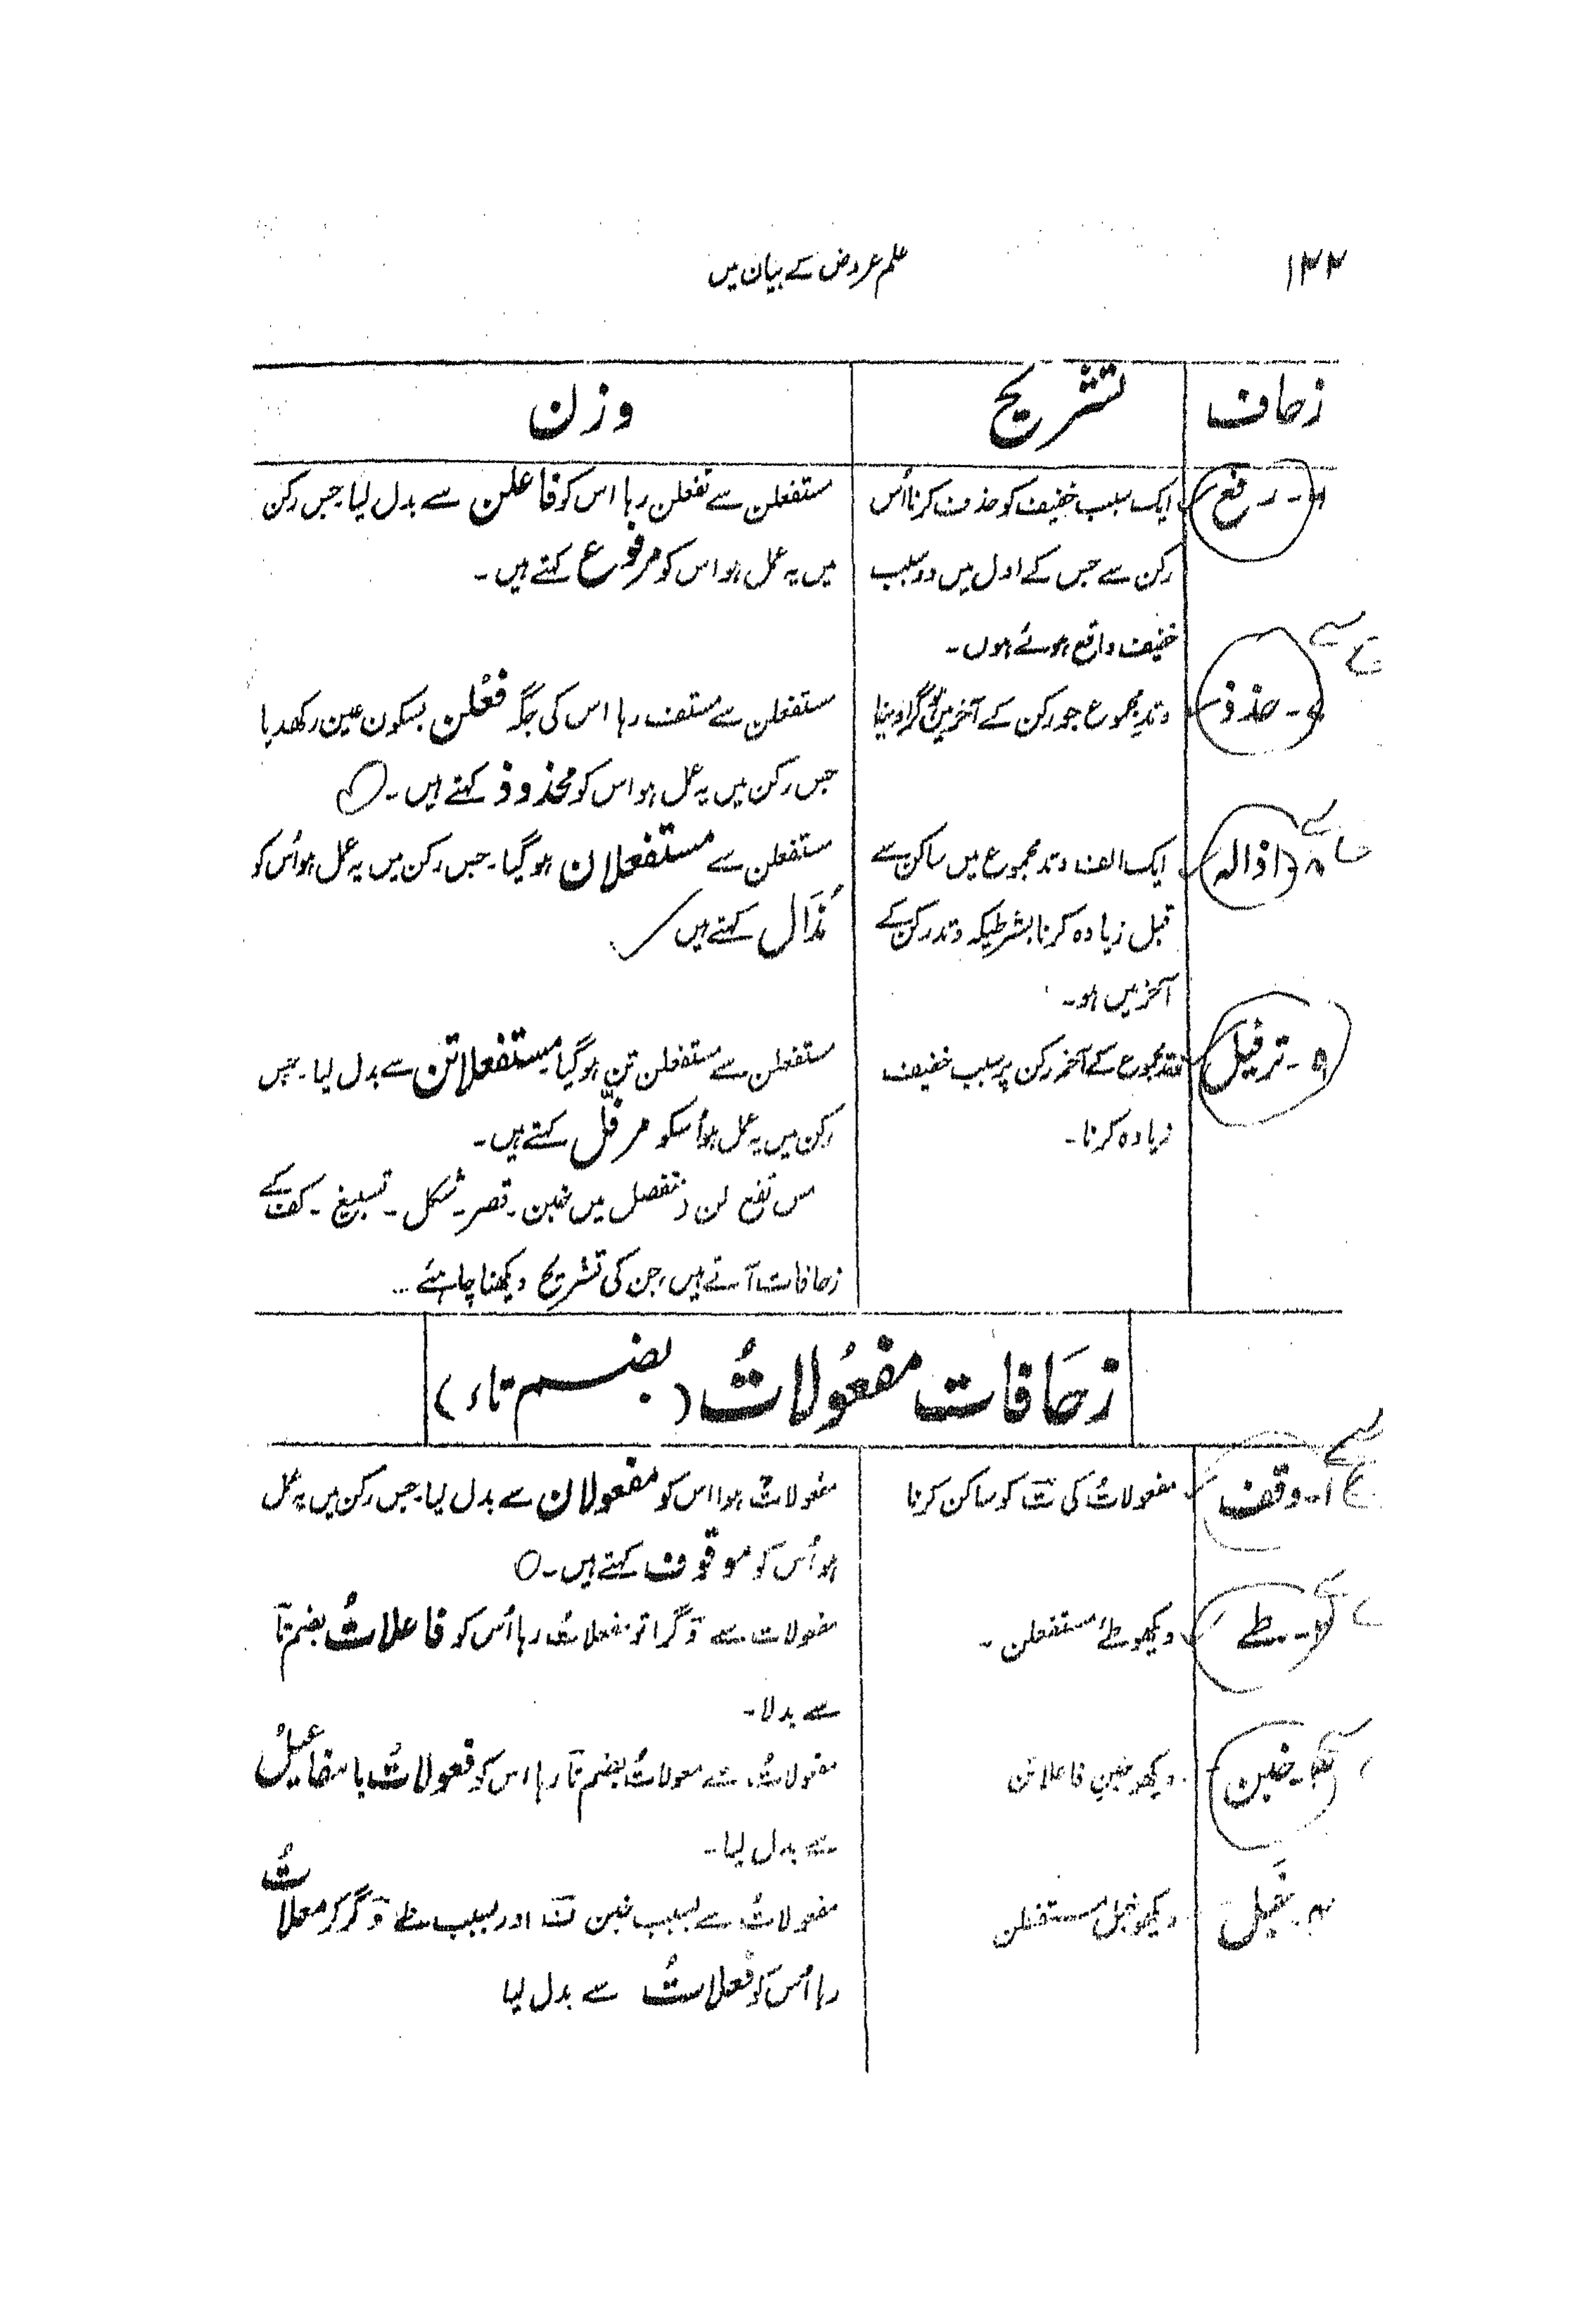 ۱۲۲
علم عروض کے بیان میں
زحاف
تشریح
وزن
رفع
ایک سبب خفیف کو حذف کرنا اُس
رکن سے جس کے اول میں دو سبب
خفیف واقع ہوئے ہوں۔
مستفعلن سے تفعلن رہا اس کو فاعلن سے بدل لیا۔ جس رکن
میں یہ عمل ہو اس کو مرفوع کہتے ہیں۔
حذذ
وتدِ مجموع جو رکن کے آخر میں ہو گرا دینا
مستفعلن سے مستف رہا اس کی جگہ فعْلن بسکون عین رکھدیا
جس رکن میں یہ عمل ہو اس کو محذوذ کہتے ہیں۔
۸۔ اذالہ
ایک الف وتد مجموع میں ساکن سے
قبل زیادہ کرنا بشرطیکہ وتد رکن کے
آخر میں ہو۔
مستفعلن سے مستفعلان ہو گیا۔ جس رکن میں یہ عمل ہو اُس کو
مُذَال کہتے ہیں
۹۔ ترفیل
مجموع کے آخر رکن پر سبب خفیف
زیادہ کرنا۔
مستفعلن سے مستفعلن تن ہو گیا مستفعلاتن سے بدل لیا۔ جس
رکن میں یہ عمل ہو اُسکو مرفّل کہتے ہیں۔
مس تفع لن منفصل میں خبن۔ قصر۔ شکل۔ تسبیغ۔ کف کے
زحافات آتے ہیں، جن کی تشریح دیکھنا چاہئے ...
زحَافات مفعُولاتُ (بضم تاء)
۱۔ وقف
مفعولاتُ کی تَ کو ساکن کرنا
مفعولاتْ ہوا اس کو مفعولان سے بدل لیا۔ جس رکن میں یہ عمل
ہو اُس کو موقوف کہتے ہیں۔
۲۔ طے
دیکھو طے مستفعلن۔
مفعولات سے وَ گرا تو مفعلاتُ رہا اُس کو فاعلاتُ بضم تا
سے بدلا۔
خبن
دیکھو خبنِ فاعلاتن
مفعولاتُ سے معولاتُ بضم تا رہا اس کو فعولاتُ یا مفاعیلُ
سے بدل لیا۔
۴۔ خَبل
دیکھو خبل مستفعلن
مفعولاتُ سے بسبب خبن فَ اور بسبب طے وَ گر کر معلاتُ
رہا اُس کو فعلاتُ سے بدل لیا